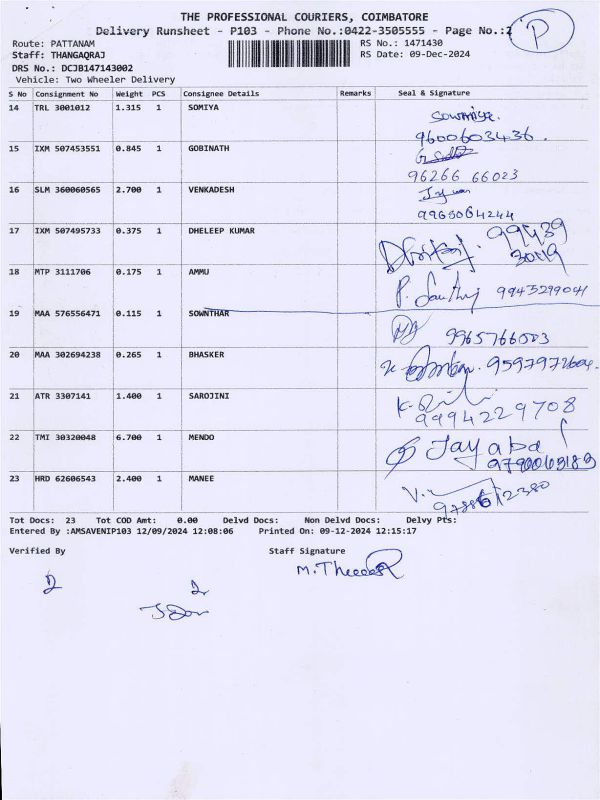 THE PROFESSIONAL COURIERS, COIMBATORE
Delivery Runsheet - P103 - Phone No.:0422-3505555 - Page No.:2
P
Route: PATTANAM RS No.: 1471430
Staff: THANGAQRAJ RS Date: 09-Dec-2024
DRS No.: DCJB147143002
Vehicle: Two Wheeler Delivery
S No Consignment No Weight PCS Consignee Details Remarks Seal & Signature
14 TRL 3001012 1.315 1 SOMIYA Sowmiya.
9600603436.
15 IXM 507453551 0.845 1 GOBINATH
96266 66023
16 SLM 360060565 2.700 1 VENKADESH
9965064244
17 IXM 507495733 0.375 1 DHELEEP KUMAR 99439
30119
18 MTP 3111706 0.175 1 AMMU
P. 9945299041
19 MAA 576556471 0.115 1 SOWNTHAR
9965766003
20 MAA 302694238 0.265 1 BHASKER
21 ATR 3307141 1.400 1 SAROJINI
9994229708
22 TMI 30320048 6.700 1 MENDO Jayaba
23 HRD 62606543 2.400 1 MANEE
Tot Docs: 23 Tot COD Amt: 0.00 Delvd Docs: Non Delvd Docs: Delvy Pts:
Entered By :AMSAVENIP103 12/09/2024 12:08:06 Printed On: 09-12-2024 12:15:17
Verified By Staff Signature